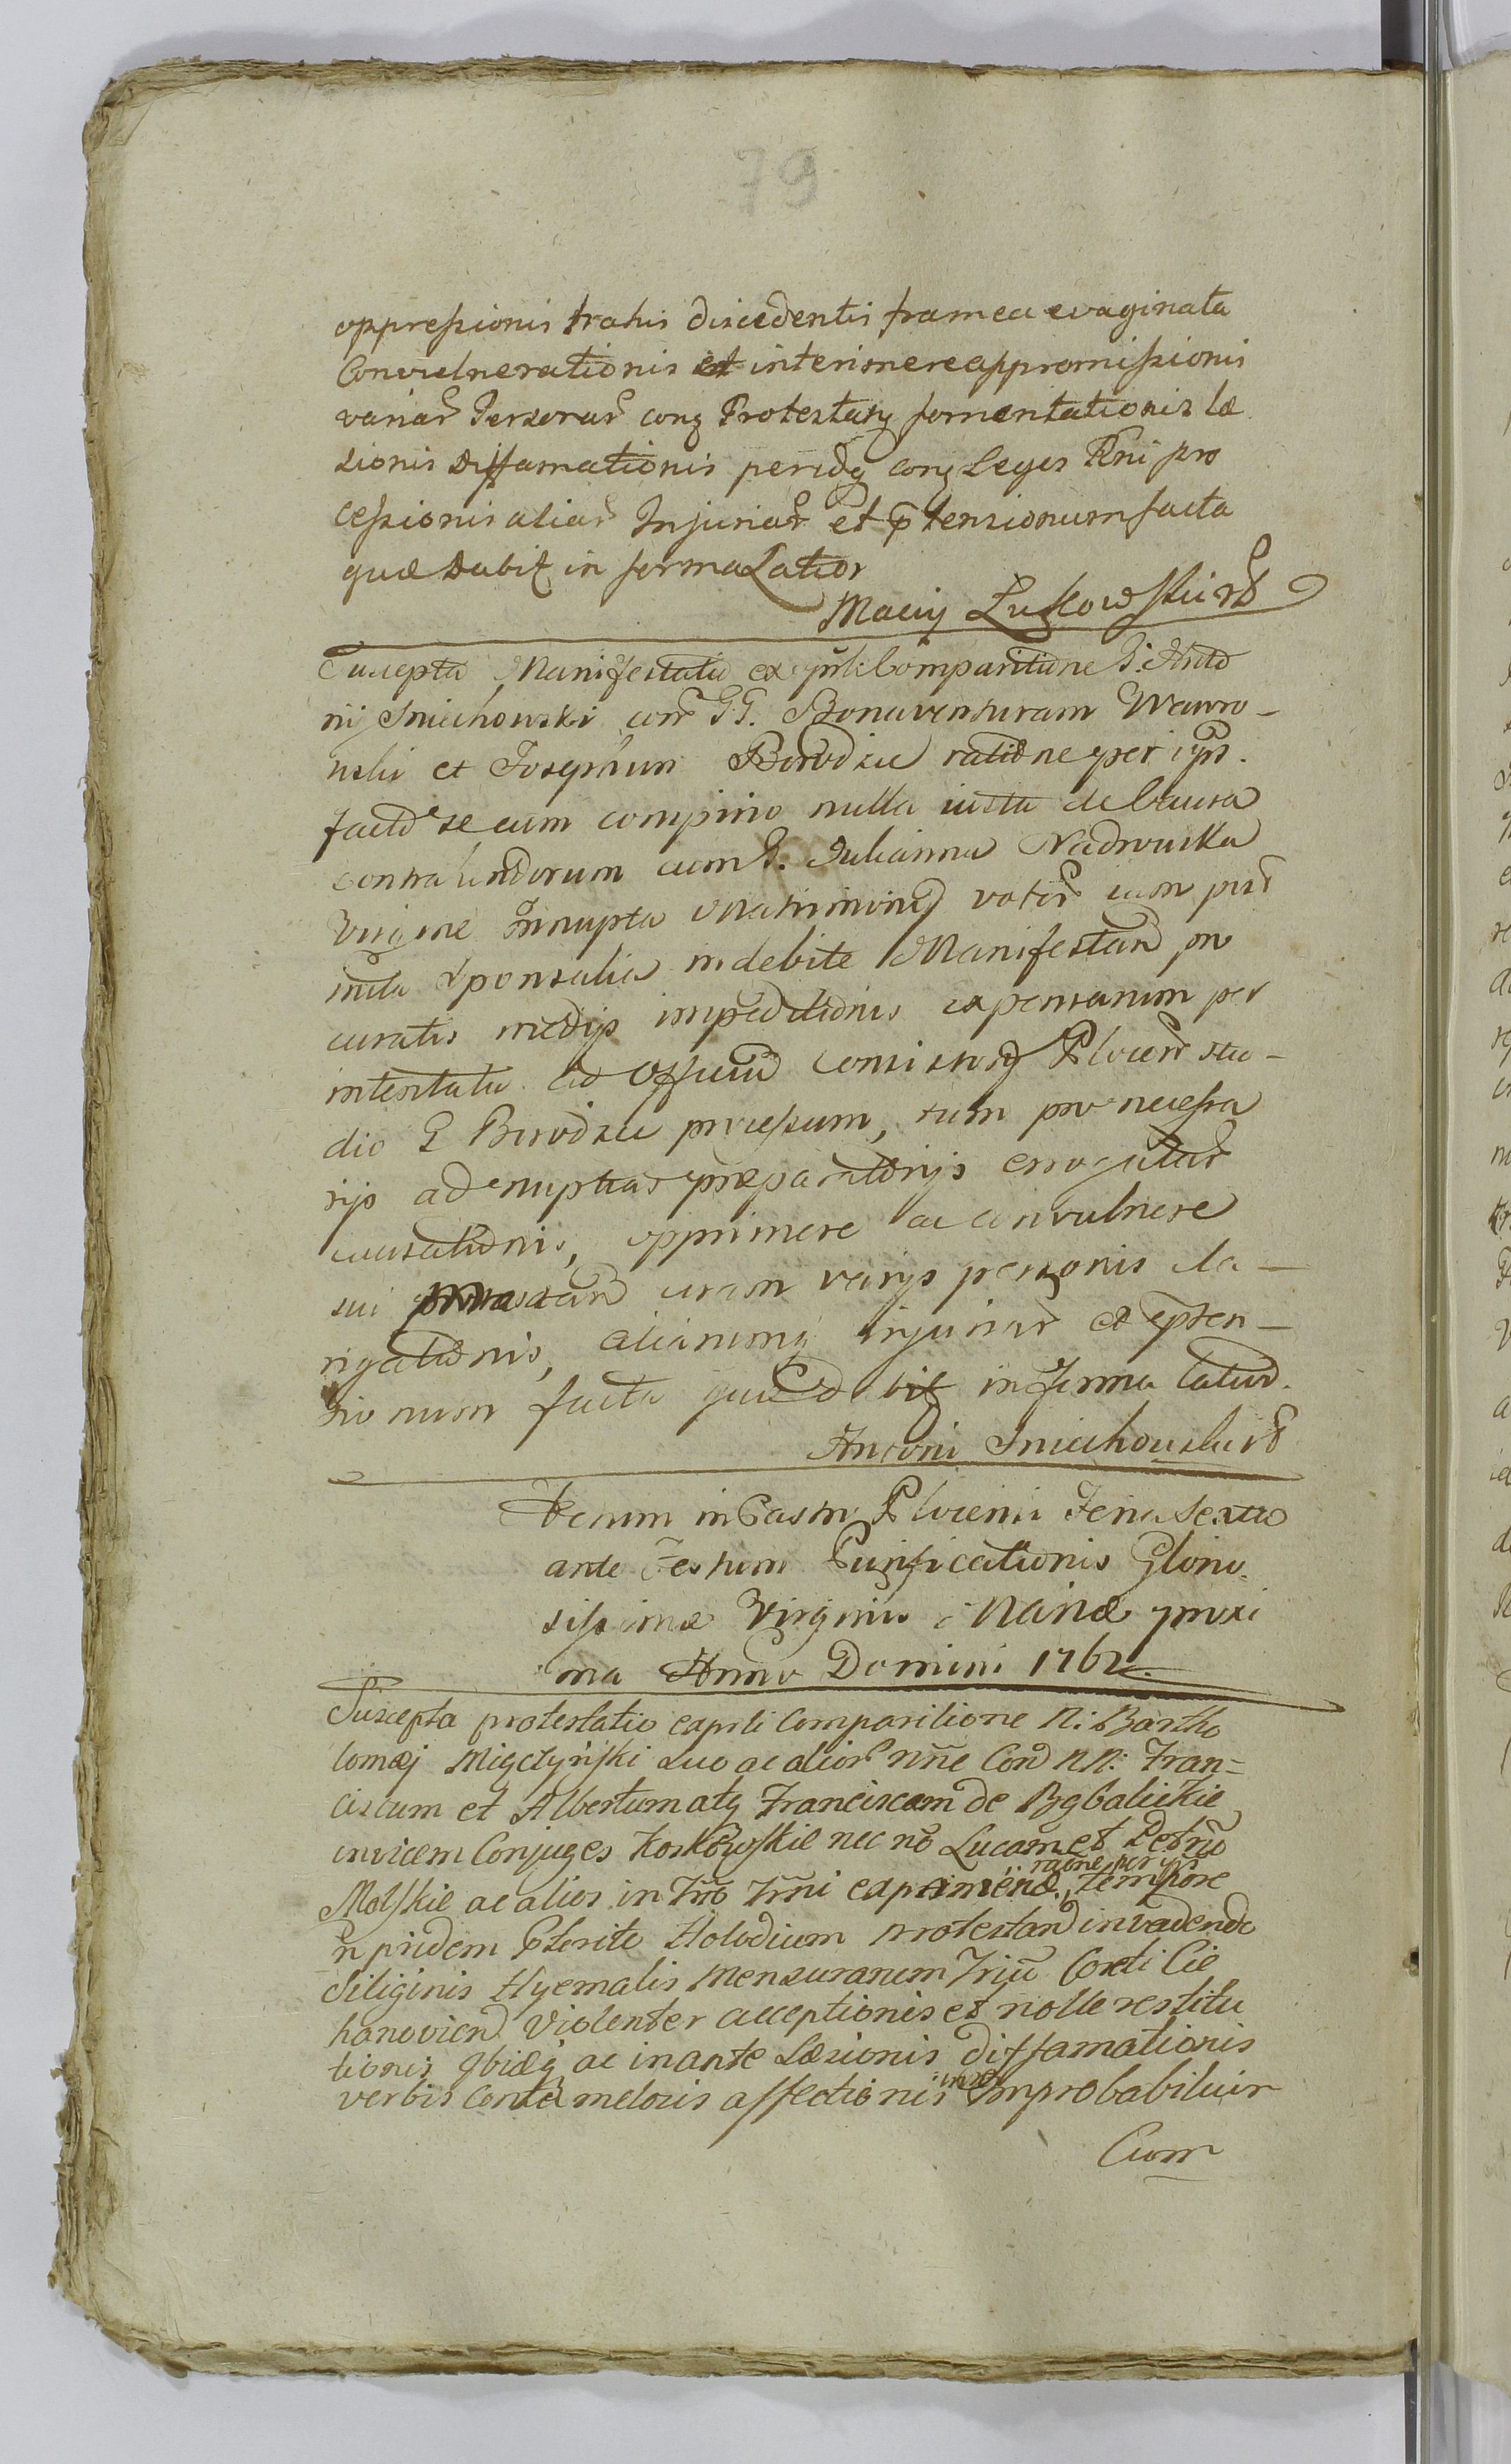 79
oppressionis tratus discedentis framea evaginata
Convulnerationis et interimere appromissionis
variar Personar conq Protestatq fomentationis læ
sionis Diffamationis peridq conq Leges Rni pro
cessionis aliar Injuriar et ptensionum facta
quæ Dabit in forma Latior
Maciy Lukowski
Suscepta Manifestatio ex psti Comparitione G. Anto
nij Sniechowski con GG. Bonaventuram Wawro-
nski et Josephum Borodzic ratione per ips.
facto se cum compino nulla iusta de Causa
contrahendorum cum G. Julianna Nadrowska
Virgine Innupta Matrimonij votor iam post
inita Sponsalia indebite Manifestan pro
curatis medijs impeditionis expensarum per
intentatu ad Officiu Consistorij Plocen stu-
dio G Borodzic processum, tum pro necessa
rijs ad nuptias præparatorijs erogatar
causationis, opprimere ac convulnere
sui coram varijs personis de-
rigationis, aliarumq injuriar et ptens-
sionum facta quæ Dabit in forma latiori.
Antoni Sniechowski
Actum in Castro Plocensi Feria Sexta
ante Festum Purificationis Glorio-
sissimæ Virginis Mariæ proxi
ma Anno Domini 1762.
Suscepta protestatio exprsti Comparitione N: Bartho
lomæj Mięctyński suo ac alior nne Con NN: Fran=
ciscum et Albertum atq Franciscam de
invicem Conjuges Koskowskie nec no Lucam et Petru
raone per ips
Molskie ac alios in Tmo Tmi exprimenæ. tempore
n pridem Præterito Holodium protestan invadendo
Siliginis Hyemalis Mensurarum Triu Coreti Cie
hanovien Violenter acceptionis et nolle restitu
tionis qbidq ac inante Læsionis diffamationis
verbis contumelosis affectionis improbabiliuin
Cum